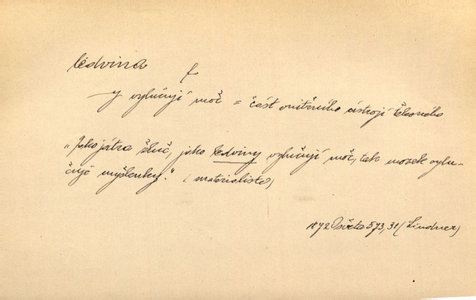 ledvina f
y vylučují moč = část vnitřního ústrojí tělesného
„Jako játra žluč, jako ledviny vylučují moč, tak mozek vylu-
čuje myšlenky." (materialisté)
1872 Osvěta 573, 31 (Lindner)